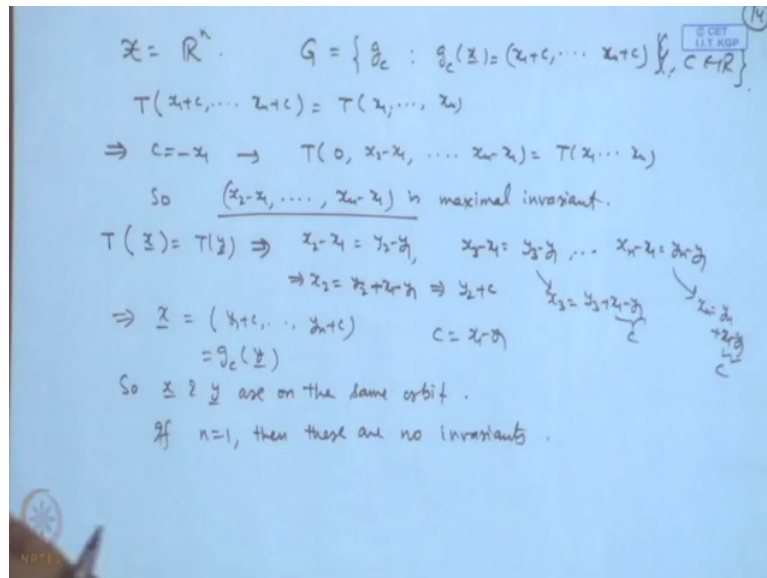 14
© CET
I.I.T. KGP
𝔛 = ℝⁿ. G = { g_c : g_c(x) = (x₁+c, ⋯ xₙ+c) }, c ∈ ℝ }.
T(x₁+c, ⋯ xₙ+c) = T(x₁, ⋯, xₙ)
⇒ c = -x₁ → T(0, x₂-x₁, ⋯ xₙ-x₁) = T(x₁ ⋯ xₙ)
So (x₂-x₁, ⋯, xₙ-x₁) is maximal invariant.
T(x) = T(y) ⇒ x₂-x₁ = y₂-y₁, x₃-x₁ = y₃-y₁, ⋯ xₙ-x₁ = yₙ-y₁
⇒ x₂ = y₂+x₁-y₁ ⇒ y₂+c x₃ = y₃+x₁-y₁ xₙ = yₙ+x₁-y₁
c c
⇒ x = (y₁+c, ⋯, yₙ+c) c = x₁-y₁
= g_c(y)
So x & y are on the same orbit.
If n=1, then there are no invariants.
NPTEL